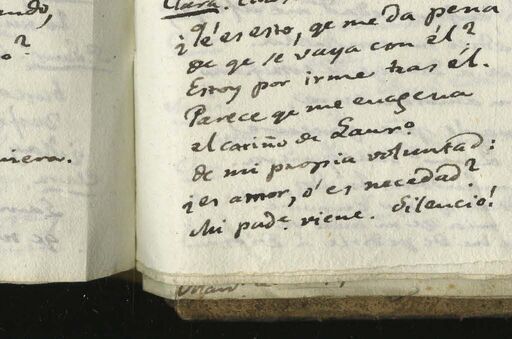 ndo,
o?
niera.
Clara.
¿Q.e es esto, qe me da pena
de qe se vaya con él?
Estoy por irme tras él.
Parece qe me enagena
el cariño de Lauro
de mi propia voluntad:
¿es amor, ó es necedad?
Mi pade. viene. Silencio!